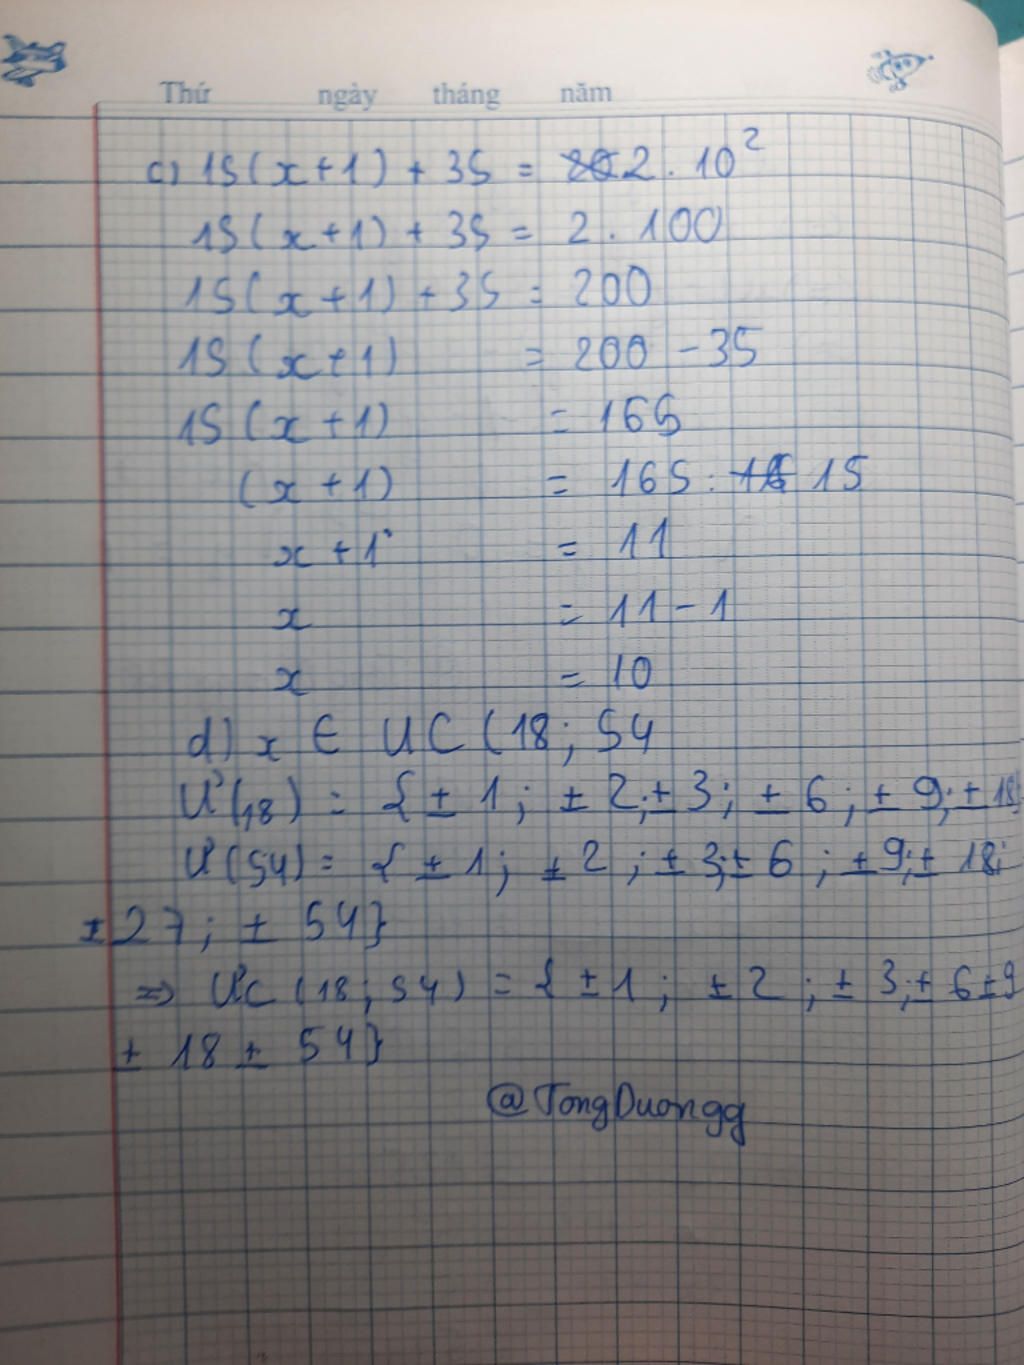 Thứ ngày tháng năm
c) 15(x+1) + 35 = 2 . 10²
15(x+1) + 35 = 2 . 100
15(x+1) + 35 = 200
15(x+1) = 200 - 35
15(x+1) = 165
(x+1) = 165 : 15
x + 1 = 11
x = 11 - 1
x = 10
d) x ∈ ƯC (18; 54
Ư(18) = { ± 1; ± 2; ± 3; ± 6; ± 9; ± 18
Ư(54) = { ± 1; ± 2; ± 3; ± 6; ± 9; ± 18;
± 27; ± 54}
=> ƯC (18; 54) = { ± 1; ± 2; ± 3; ± 6 ± 9
± 18 ± 54}
@TongDuongg